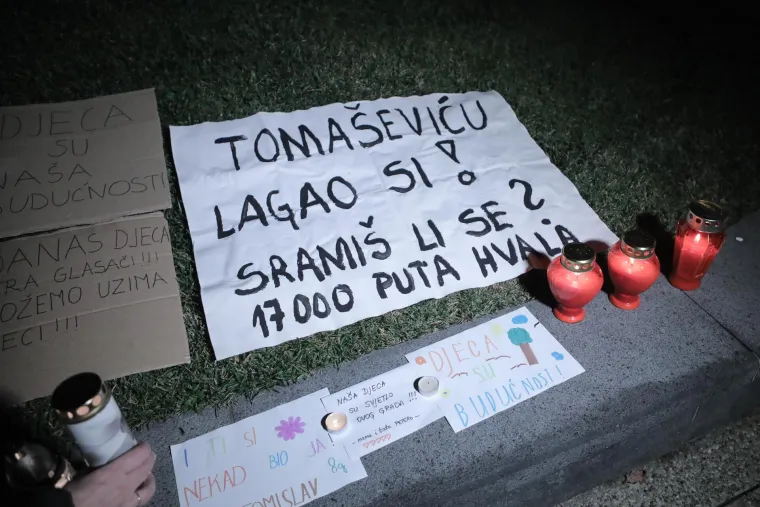 DJECA
SU
NAŠA
BUDUĆNOSTI
DANAS DJECA
TRA GLASAČI!!!
OŽEMO UZIMA
ECI !!!
TOMAŠEVIĆU
LAGAO SI!
SRAMIŠ LI SE?
17000 PUTA HVALA
I TI SI
NEKAD BIO JA
TOMISLAV 8g
NAŠA DJECA
SU SVJETLO
OVOG GRADA !!!
- mama i tata
DJECA
SU
BUDUĆNOST!